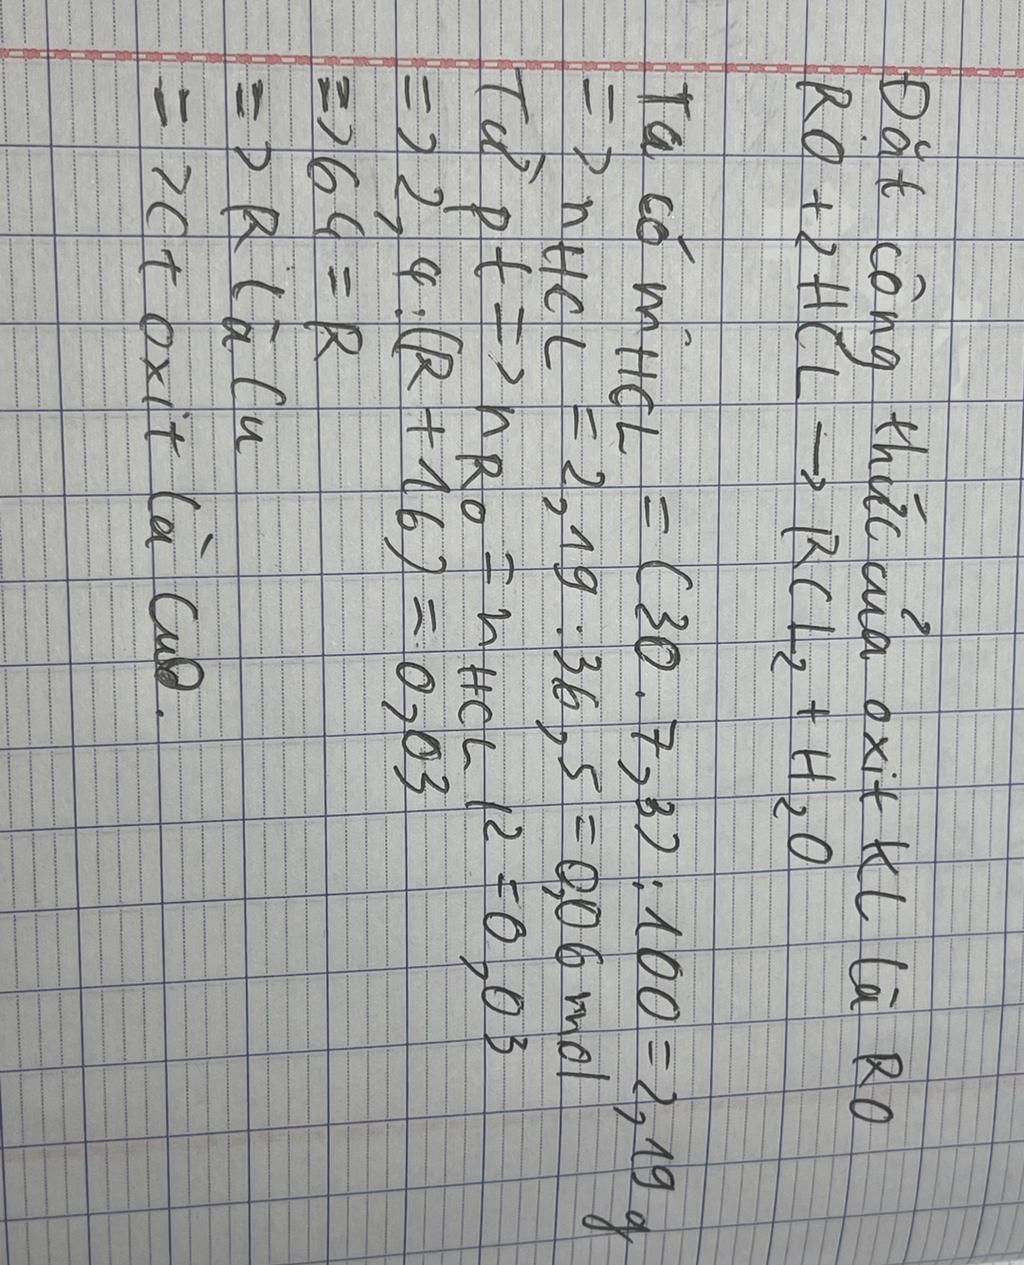 Đặt công thức của oxit KL là RO
RO + 2HCL → RCL₂ + H₂O
Ta có mHCL = (30 . 7,3) : 100 = 2,19 g
=> nHCL = 2,19 : 36,5 = 0,06 mol
Từ pt => nRO = nHCL / 2 = 0,03
=> 2,4 : (R + 16) = 0,03
=> 64 = R
=> R là Cu
=> Ct oxit là CuO.